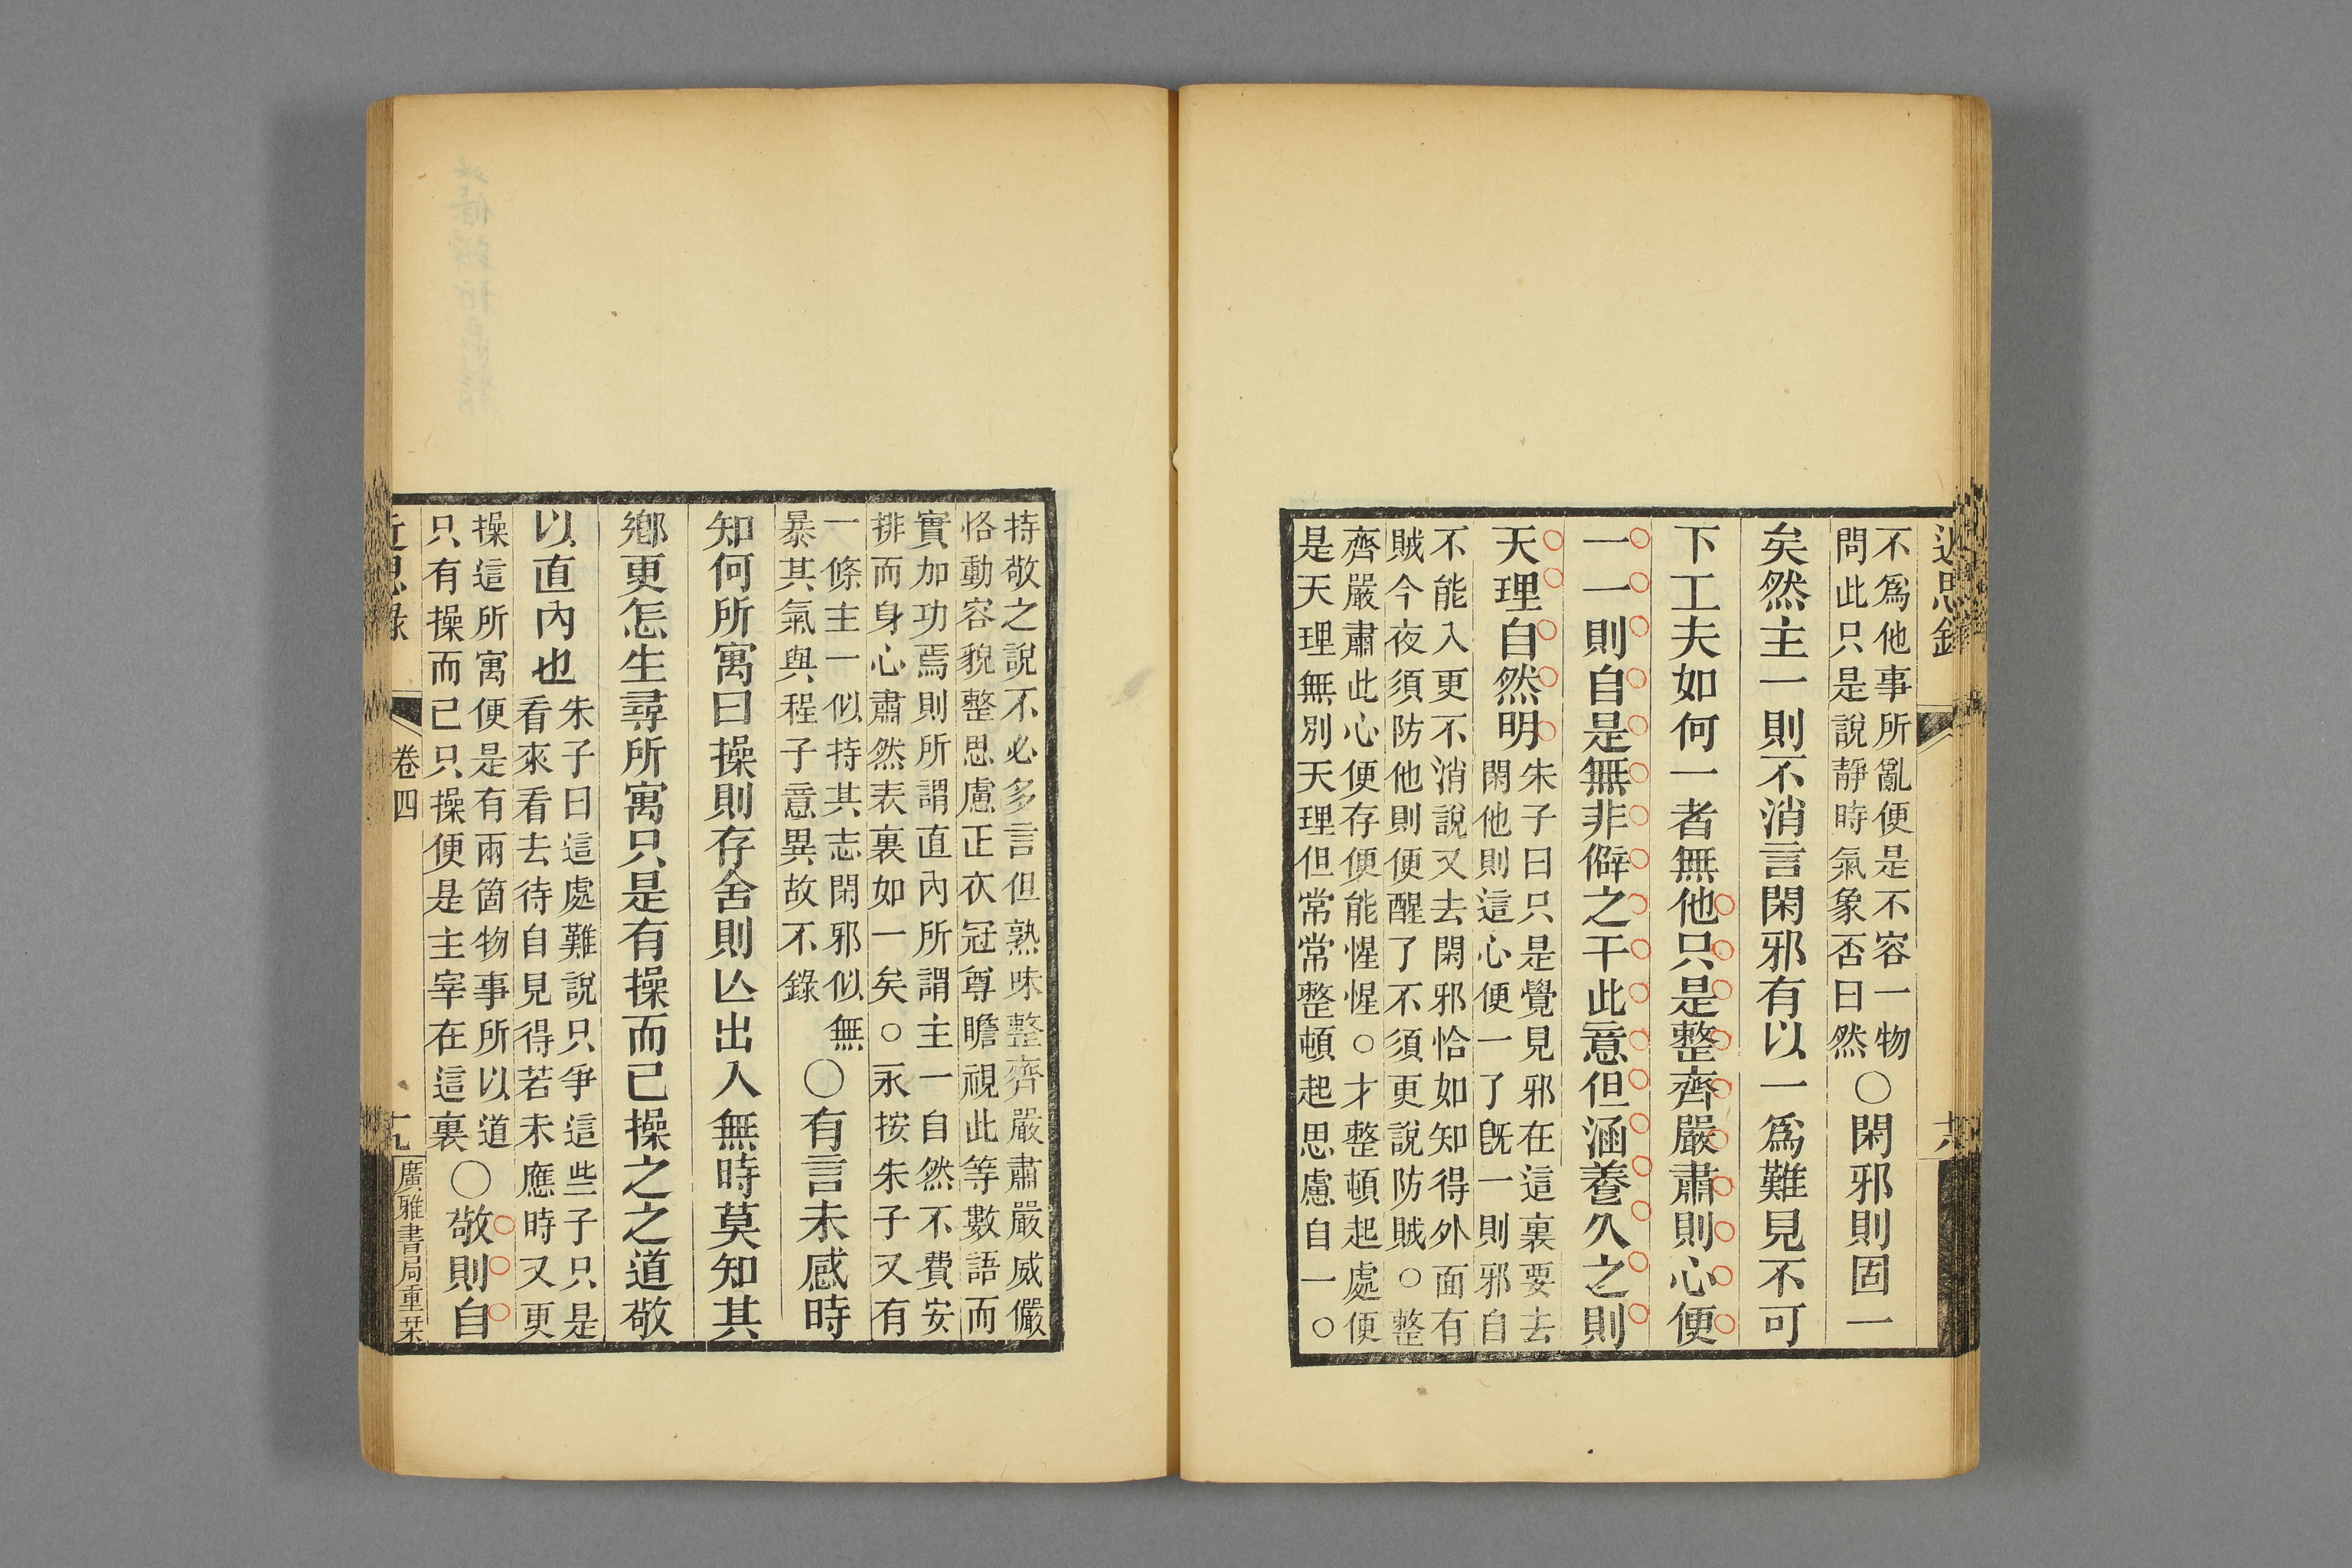 近思錄
不爲他事所亂便是不容一物
問此只是說靜時氣象否曰然
○閑邪則固一
矣然主一則不消言閑邪有以一爲難見不可
下工夫如何一者無他只是整齊嚴肅則心便
一一則自是無非僻之干此意但涵養久之則
天理自然明
朱子曰只是覺見邪在這裏要去
閑他則這心便一了旣一則邪自
不能入更不消說又去閑邪恰如知得外面有
賊今夜須防他則便醒了不須更說防賊○整
齊嚴肅此心便存便能惺惺○才整頓起處便
是天理無別天理但常常整頓起思慮自一○
持敬之說不必多言但熟味整齊嚴肅嚴威儼
恪動容貌整思慮正衣冠尊瞻視此等數語而
實加功焉則所謂直內所謂主一自然不費安
排而身心肅然表裏如一矣○永按朱子又有
一條主一似持其志閑邪似無
暴其氣與程子意異故不錄
○有言未感時
知何所寓曰操則存舍則亾出入無時莫知其
鄉更怎生尋所寓只是有操而已操之之道敬
以直內也
朱子曰這處難說只爭這些子只是
看來看去待自見得若未應時又更
操這所寓便是有兩箇物事所以道
只有操而已只操便是主宰在這裏
○敬則自
近思錄
卷四
廣雅書局重栞